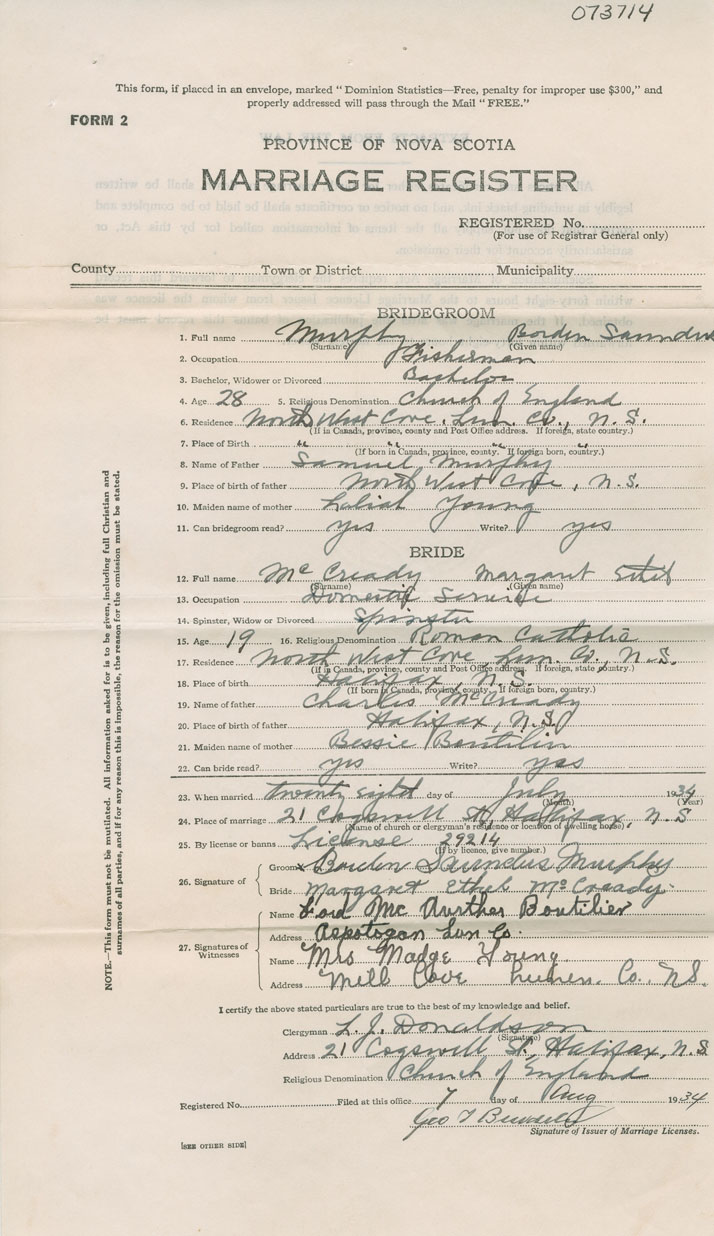 073714
This form, if placed in an envelope, marked "Dominion Statistics—Free, penalty for improper use $300," and
properly addressed will pass through the Mail "FREE."
FORM 2
PROVINCE OF NOVA SCOTIA
MARRIAGE REGISTER
REGISTERED No.
(For use of Registrar General only)
County Town or District Municipality
BRIDEGROOM
1. Full name Murphy Borden Saunders
(Surname) (Given name)
2. Occupation Fisherman
3. Bachelor, Widower or Divorced Bachelor
4. Age 28 5. Religious Denomination Church of England
6. Residence North West Cove, Lun. Co., N.S.
(If in Canada, province, county and Post Office address. If foreign, state country.)
7. Place of Birth " " " "
(If born in Canada, province, county. If foreign born, country.)
8. Name of Father Samuel Murphy
9. Place of birth of father North West Cove, N.S.
10. Maiden name of mother Young
11. Can bridegroom read? yes Write? yes
BRIDE
12. Full name McCready Margaret Ethel
(Surname) (Given name)
13. Occupation Domestic Service
14. Spinster, Widow or Divorced Spinster
15. Age 19 16. Religious Denomination Roman Catholic
17. Residence North West Cove, Lun. Co., N.S.
(If in Canada, province, county and Post Office address. If foreign, state country.)
18. Place of birth Halifax, N.S.
(If born in Canada, province, county. If foreign born, country.)
19. Name of father Charles McCready
20. Place of birth of father Halifax, N.S.
21. Maiden name of mother Bessie Boutilier
22. Can bride read? yes Write? yes
23. When married twenty eight day of July 1934
(Month) (Year)
24. Place of marriage 21 Cogswell St, Halifax, N.S
(Name of church or clergyman's residence or location of dwelling house)
25. By license or banns License 29214
(If by licence, give number.)
26. Signature of Groom x Borden Saunders Murphy
Bride Margaret Ethel McCready
27. Signatures of Witnesses
Name Ford McAurther Boutilier
Address Aspotogan Lun Co.
Name Mrs Madge Young
Address Mill Cove Lunen. Co. NS.
I certify the above stated particulars are true to the best of my knowledge and belief.
Clergyman L. J. Donaldson
(Signature)
Address 21 Cogswell St, Halifax, N.S
Religious Denomination Church of England
Registered No. Filed at this office 7 day of Aug 1934
Geo T
Signature of Issuer of Marriage Licenses.
[SEE OTHER SIDE]
NOTE.—This form must not be mutilated. All information asked for is to be given, including full Christian and
surnames of all parties, and if for any reason this is impossible, the reason for the omission must be stated.